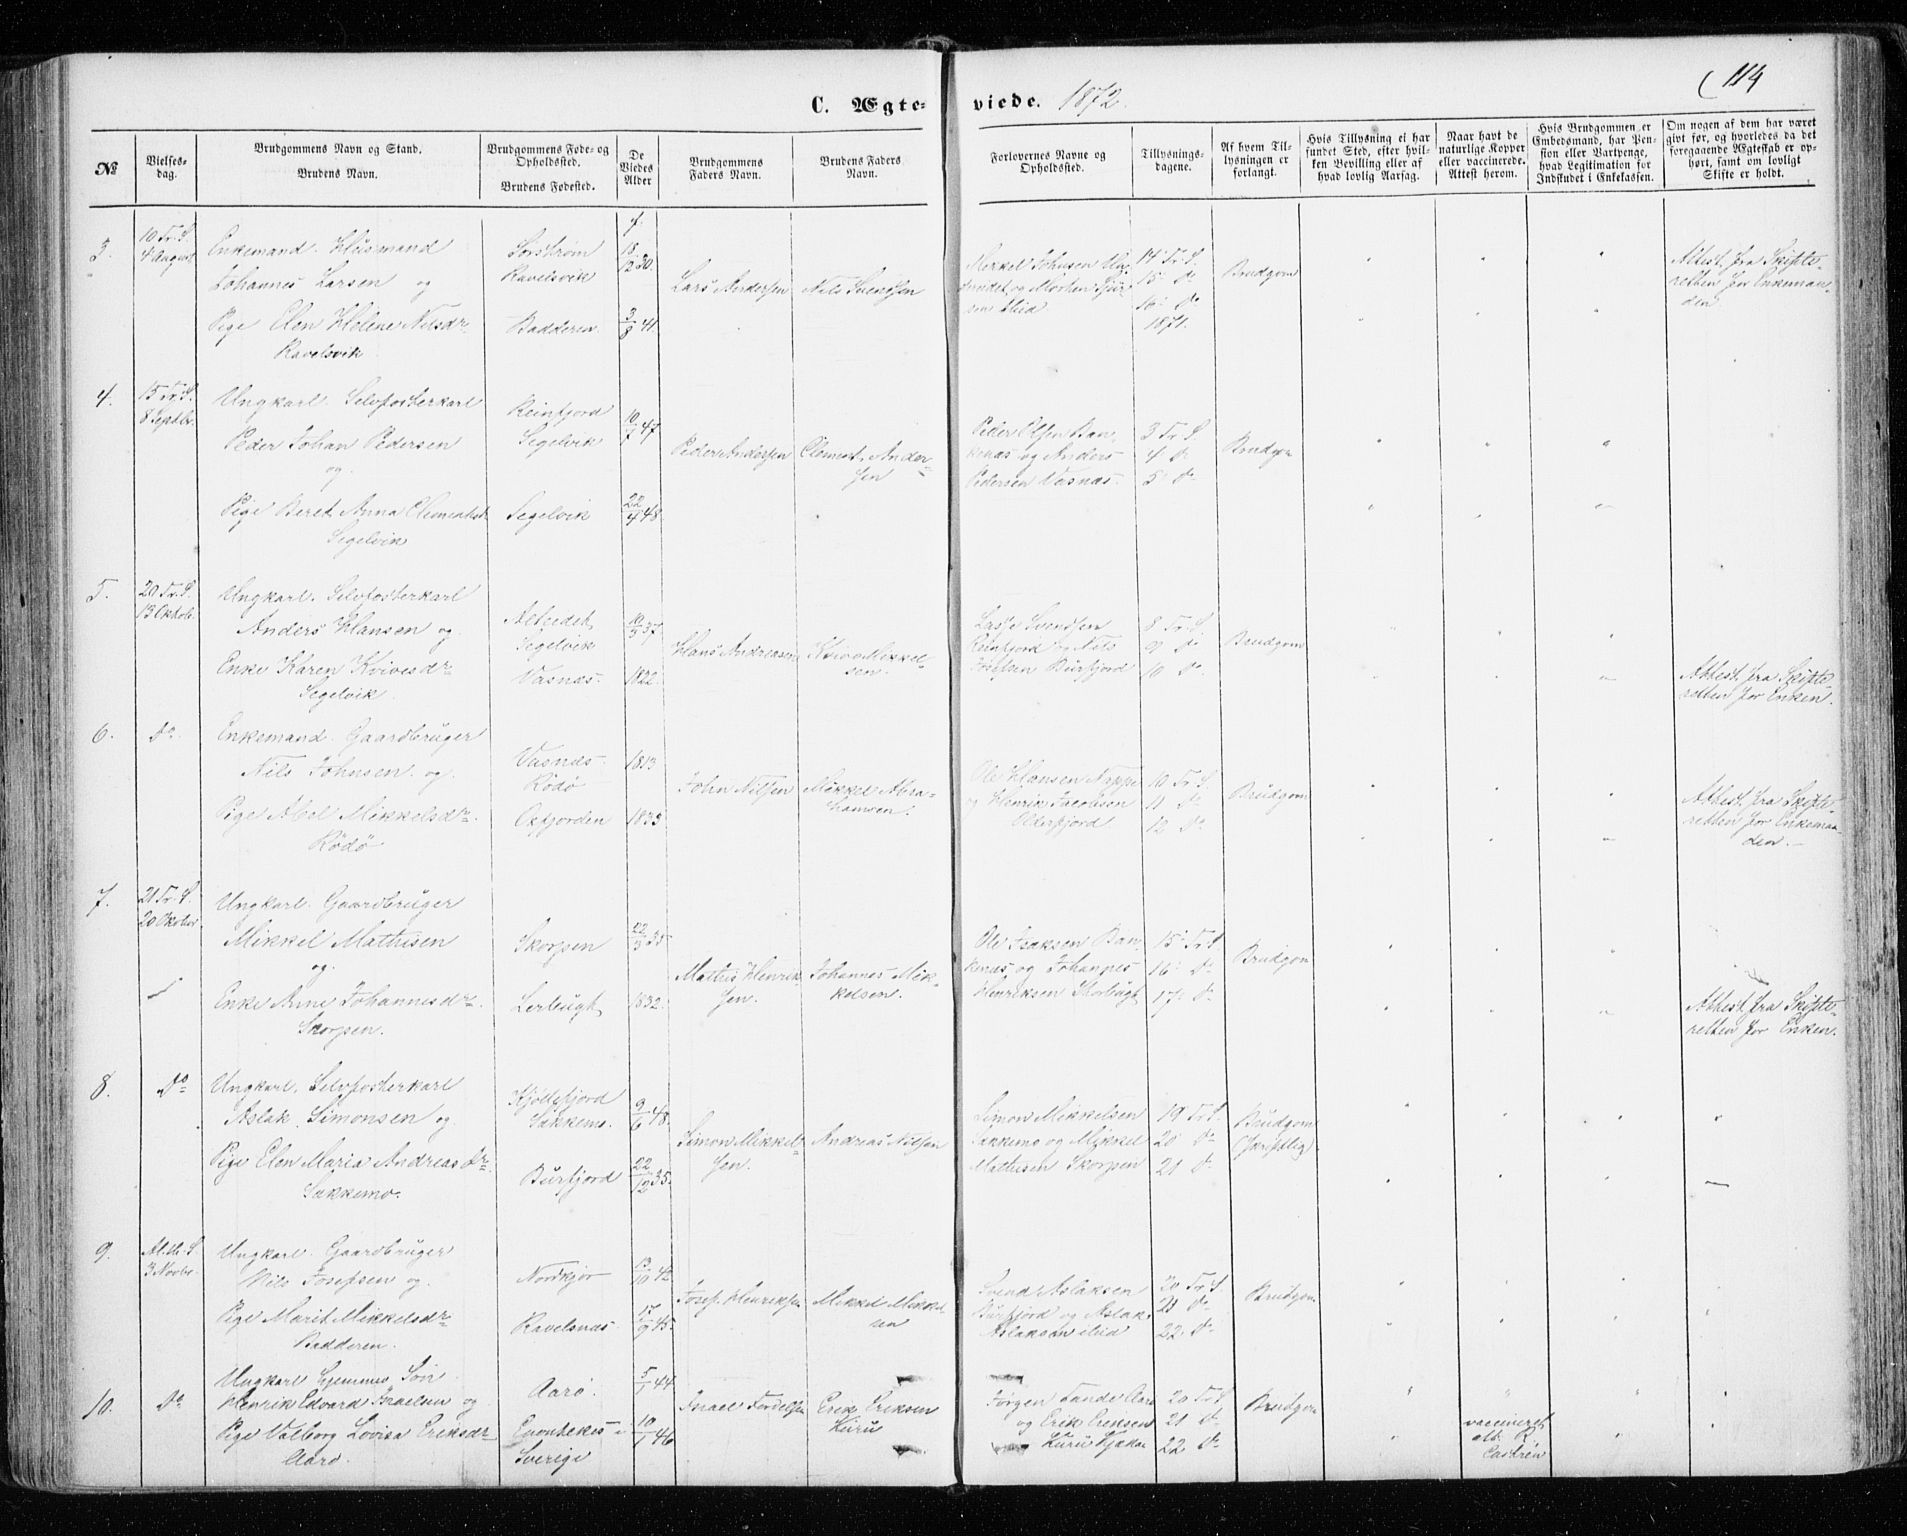 114
C. Ægte- viede. 1872.
No
Vielses-
dag.
Brudgommens Navn og Stand.
Brudens Navn.
Brudgommens Føde- og
Opholdssted.
Brudens Fødested.
De
Viedes
Alder
Brudgommens
Faders Navn.
Brudens Faders
Navn.
Forlovernes Navne og
Opholdssted.
Tillysnings-
dagene.
Af hvem Til-
lysningen er
forlangt.
Hvis Tillysning ei har
fundet Sted, efter hvil-
ken Bevilling eller af
hvad lovlig Aarsag.
Naar havt de
naturlige Kopper
eller vaccinerede.
Attest herom.
Hvis Brudgommen er
Embedsmand, har Pen-
sion eller Vartpenge,
hvad Legitimation for
Indskudet i Enkekassen.
Om nogen af dem har været
givt før, og hvorledes da det
foregaaende Ægteskab er op-
hørt, samt om lovligt
Skifte er holdt.
3.
10 Tr. S.
4 August
Enkemand. Husmand
Johannes Larsen og
Pige Elen Helene Nilsdr
Ravelsvik
Sørstrøm
Ravelsvik
Badderen
18/12 30
3/8 41
Lars Andersen
Nils Svendsen
Merkel Johnsen
og Morten
sen
14 Tr. S.
15 Do
16 Do
1871.
Brudgom
Attest fra Skifte-
retten for Enkeman-
den
4.
15 Tr. S.
8 Septbr.
Ungkarl. Selvfosterkarl
Peder Johan Pedersen
og
Pige Beret Anna Clementsdr
Segelvik
Reinfjord
Segelvik
Segelvik
10/7 47
22/4 48
Peder Andersen
Clement Ander-
sen
Peder Olsen Ban-
kenæs og Anders
Pedersen Vasnæs
3 Tr. S.
4 Do
5 Do
Brudgom
5.
20 Tr. S.
13 Oktob.
Ungkarl. Selvfosterkarl
Anders Hansen og
Enke Karen Kvivesdr
Segelvik
Alteidet
Segelvik
Vasnæs.
10/3 37
1822
Hans Andreasen
Mikkel-
sen.
Lasse Svendsen
Reinfjord og Nils
Josefsen Burfjord
8 Tr. S.
9 Do
10 Do
Brudgom
Attest fra Skifte-
retten for Enken.
6.
Do
Enkemand. Gaardbruger
Nils Johnsen og
Pige Abel Mikkelsdr.
Rödø
Vasnæs.
Rödø
Oxfjorden
1813
1833
John Nilsen
Mikkel Abra-
hamsen.
Ole Hansen
og Henrik Jacobsen
Olderfjord
10 Tr. S.
11 Do
12 Do
Brudgom
Attest fra Skifte-
retten for Enkeman-
den.
7.
21 Tr. S.
20 Oktober
Ungkarl. Gaardbruger
Mikkel Mathisen
og
Enke Anne Johannesdr.
Skorpen.
Skorpen
Lerbugt
22/3 35
1832.
Mathis Henrik-
sen.
Johannes Mik-
kelsen.
Ole Isaksen Ban-
kenæs og Johannes
Henriksen Storbugt
15 Tr. S
16 Do
17 Do
Brudgom
Attest fra Skifte-
retten for Enken.
8.
Do
Ungkarl. Selvfosterkarl
Aslak Simonsen og
Pige Elen Maria Andreasdr
Sakkemo.
Kjøllefjord
Sakkemo.
Burfjord
9/6 48
22/12 35.
Simon Mikkel-
sen.
Andreas Nilsen
Simon Mikkelsen
Sakkemo og Mikkel
Mathisen Skorpen
19 Tr. S.
20 Do
21 Do
Brudgom
(Skriftlig)
9.
Al. H. S.
3 Novbr.
Ungkarl. Gaardbruger
Nils Josefsen og
Pige Marit Mikkelsdr
Badderen.
Nordkjor
Ravelsnæs
13/10 42
17/9 45
Josef Henriksen
Mikkel Mikkel-
sen
Svend Aslaksen
Burfjord og Aslak
Aslaksen ibid
20 Tr. S
21 Do
22 Do
Brudgom
10.
Do
Ungkarl hjemmes Søn
Henrik Edvard Israelsen og
Pige Valborg Lovisa Eriksdr
Aarø.
Aarø.
i
Sverige
5/1 44
10/1 46
Erik Eriksen
Kuru
Jørgen Lande Aarø
og Erik Eriksen
Kuru
20 Tr. S
21 Do
22 Do
Brudgom
vaccineret
att. R.
Castrén